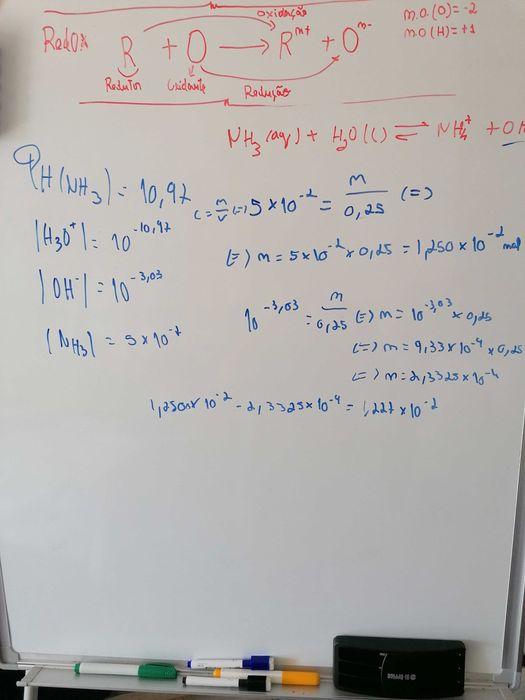 oxidação
n.o.(O) = -2
n.o(H) = +1
RedOx R + O → Rⁿ⁺ + Oⁿ⁻
Redutor Oxidante Redução
NH₃(aq) + H₂O(l) ⇌ NH₄⁺ + OH
pH(NH₃) = 10,97
|H₃O⁺| = 10^-10,97
|OH⁻| = 10^-3,03
|NH₃| = 5 × 10^-2
C = n/v (=) 5 × 10^-2 = n/0,25 (=)
(=) n = 5 × 10^-2 × 0,25 = 1,250 × 10^-2 mol
10^-3,03 = n/0,25 (=) n = 10^-3,03 × 0,25
(=) n = 9,33 × 10^-4 × 0,25
(=) n = 2,3325 × 10^-4
1,250 × 10^-2 - 2,3325 × 10^-4 = 1,227 × 10^-2